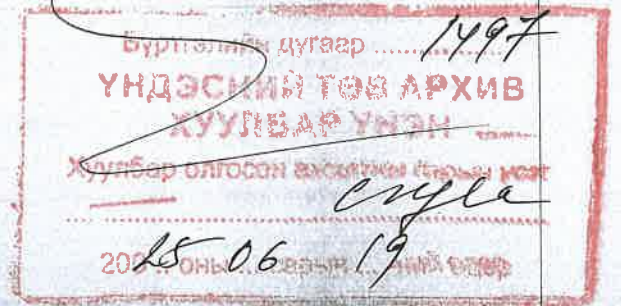 Бүртгэлийн дугаар ........ 1497
ҮНДЭСНИЙ ТӨВ АРХИВ
ХУУЛБАР ҮНЭН
Хуулбар олгосон ажилтны
2025 оны 06 сарын 19 ний өдөр